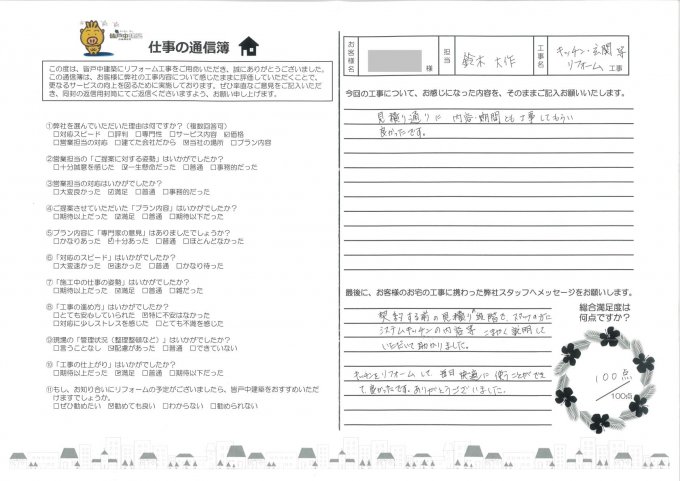 仕事の通信簿
この度は、皆戸中建築にリフォーム工事をご用命いただき、誠にありがとうございました。
この通信簿は、お客様に弊社の工事内容について感じたままに評価していただくことで、
更なるサービスの向上を図るために実施しております。ぜひ率直なご意見をご記入いただ
き、同封の返信用封筒にてご返信くださいますよう、お願い申し上げます。
①弊社を選んでいただいた理由は何ですか?(複数回答可)
□対応スピード □評判 □専門性 □サービス内容 ☑価格
□営業担当の対応 □建てた会社だから ☑当社の場所 □プラン内容
②営業担当の「ご提案に対する姿勢」はいかがでしたか?
□十分誠意を感じた ☑一生懸命だった □普通 □事務的だった
③営業担当の対応はいかがでしたか?
□大変良かった ☑満足 □普通 □事務的だった
④ご提案させていただいた「プラン内容」はいかがでしたか?
□期待以上だった ☑満足 □普通 □期待以下だった
⑤プラン内容に「専門家の意見」はありましたでしょうか?
□かなりあった ☑十分あった □普通 □ほとんどなかった
⑥「対応のスピード」はいかがでしたか?
□大変速かった ☑速かった □普通 □かなり待った
⑦「施工中の仕事の姿勢」はいかがでしたか?
□期待以上だった ☑満足 □普通 □雑だった
⑧「工事の進め方」はいかがでしたか?
□とても安心していられた ☑特に不安はなかった
□対応に少しストレスを感じた □とても不満を感じた
⑨現場の「管理状況(整理整頓など)」はいかがでしたか?
□言うことなし ☑配慮があった □普通 □できていない
⑩「工事の仕上がり」はいかがでしたか?
□期待以上だった ☑満足 □普通 □期待以下だった
⑪もし、お知り合いにリフォームの予定がございましたら、皆戸中建築をおすすめいただ
けますでしょうか。
□ぜひ勧めたい ☑勧めても良い □わからない □勧められない
お客様名 様 担当 鈴木 大作 工事名 キッチン・玄関 等 リフォーム 工事
今回の工事について、お感じになった内容を、そのままご記入お願いいたします。
見積り通りに 内容・期間とも工事してもらい
良かったです。
最後に、お客様のお宅の工事に携わった弊社スタッフへメッセージをお願いします。
契約する前の見積り段階で、スタッフの方に
システムキッチンの内容等 こまかく説明して
いただいて助かりました。
キッチンをリフォームして、毎日快適に使うことができ
て良かったです。ありがとうございました。
総合満足度は
何点ですか?
100点
/100点